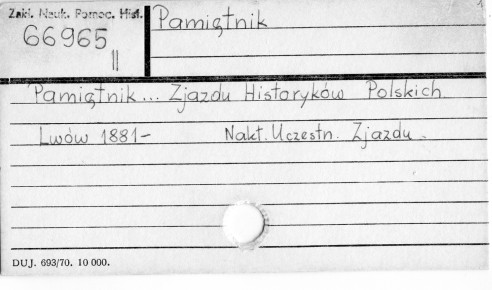 Zakł. Nauk. Pomoc. Hist.
66965
II
Pamiętnik
Pamiętnik... Zjazdu Historyków Polskich.
Lwów 1881- Nakł. Uczestn. Zjazdu.
DUJ. 693/70. 10 000.